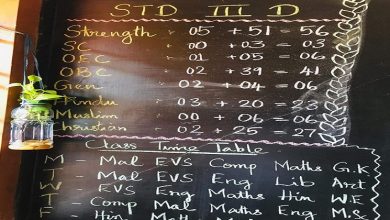 STD III D
Strength - 05 + 51 = 56
SC - 00 + 03 = 03
OEC - 01 + 05 = 06
OBC - 02 + 39 = 41
Gen - 02 + 04 = 06
Hindu - 03 + 20 = 23
Muslim - 00 + 06 = 06
Christian - 02 + 25 = 27
Class Time Table
M - Mal EVS Comp Maths G.K
T - Mal EVS Eng Lib Art
W - EVS Eng Maths Hin W.E
T - Mal EVS Comp Maths
F - Hin Mal Eng Maths M.S